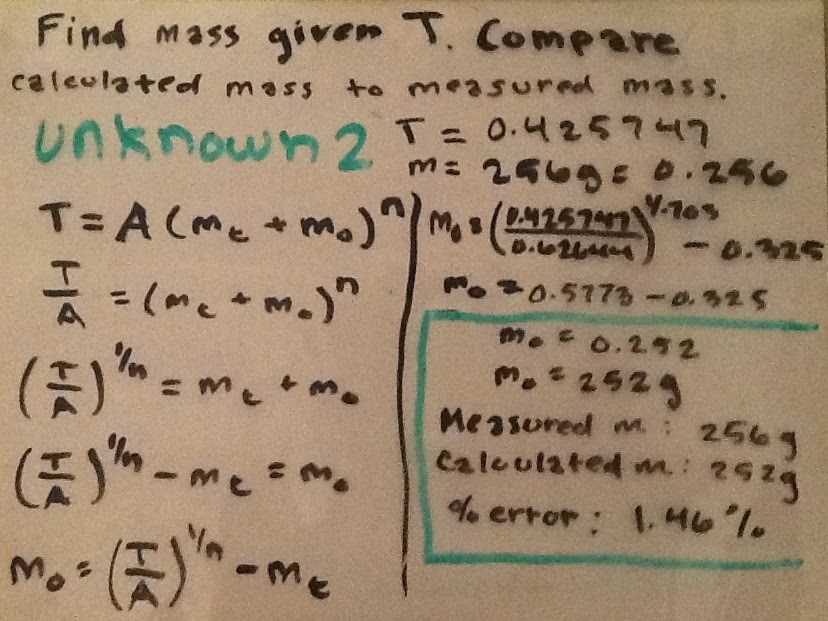 Find mass given T. Compare
calculated mass to measured mass.
Unknown 2
T = 0.425747
m = 256g = 0.256
T = A(mt + mo)^n
T/A = (mt + mo)^n
(T/A)^1/n = mt + mo
(T/A)^1/n - mt = mo
mo = (T/A)^1/n - mt
mo = (0.425747/0.626444)^1/.703 - 0.325
mo = 0.5773 - 0.325
mo = 0.252
mo = 252g
Measured m: 256g
Calculated m: 252g
% error: 1.46%